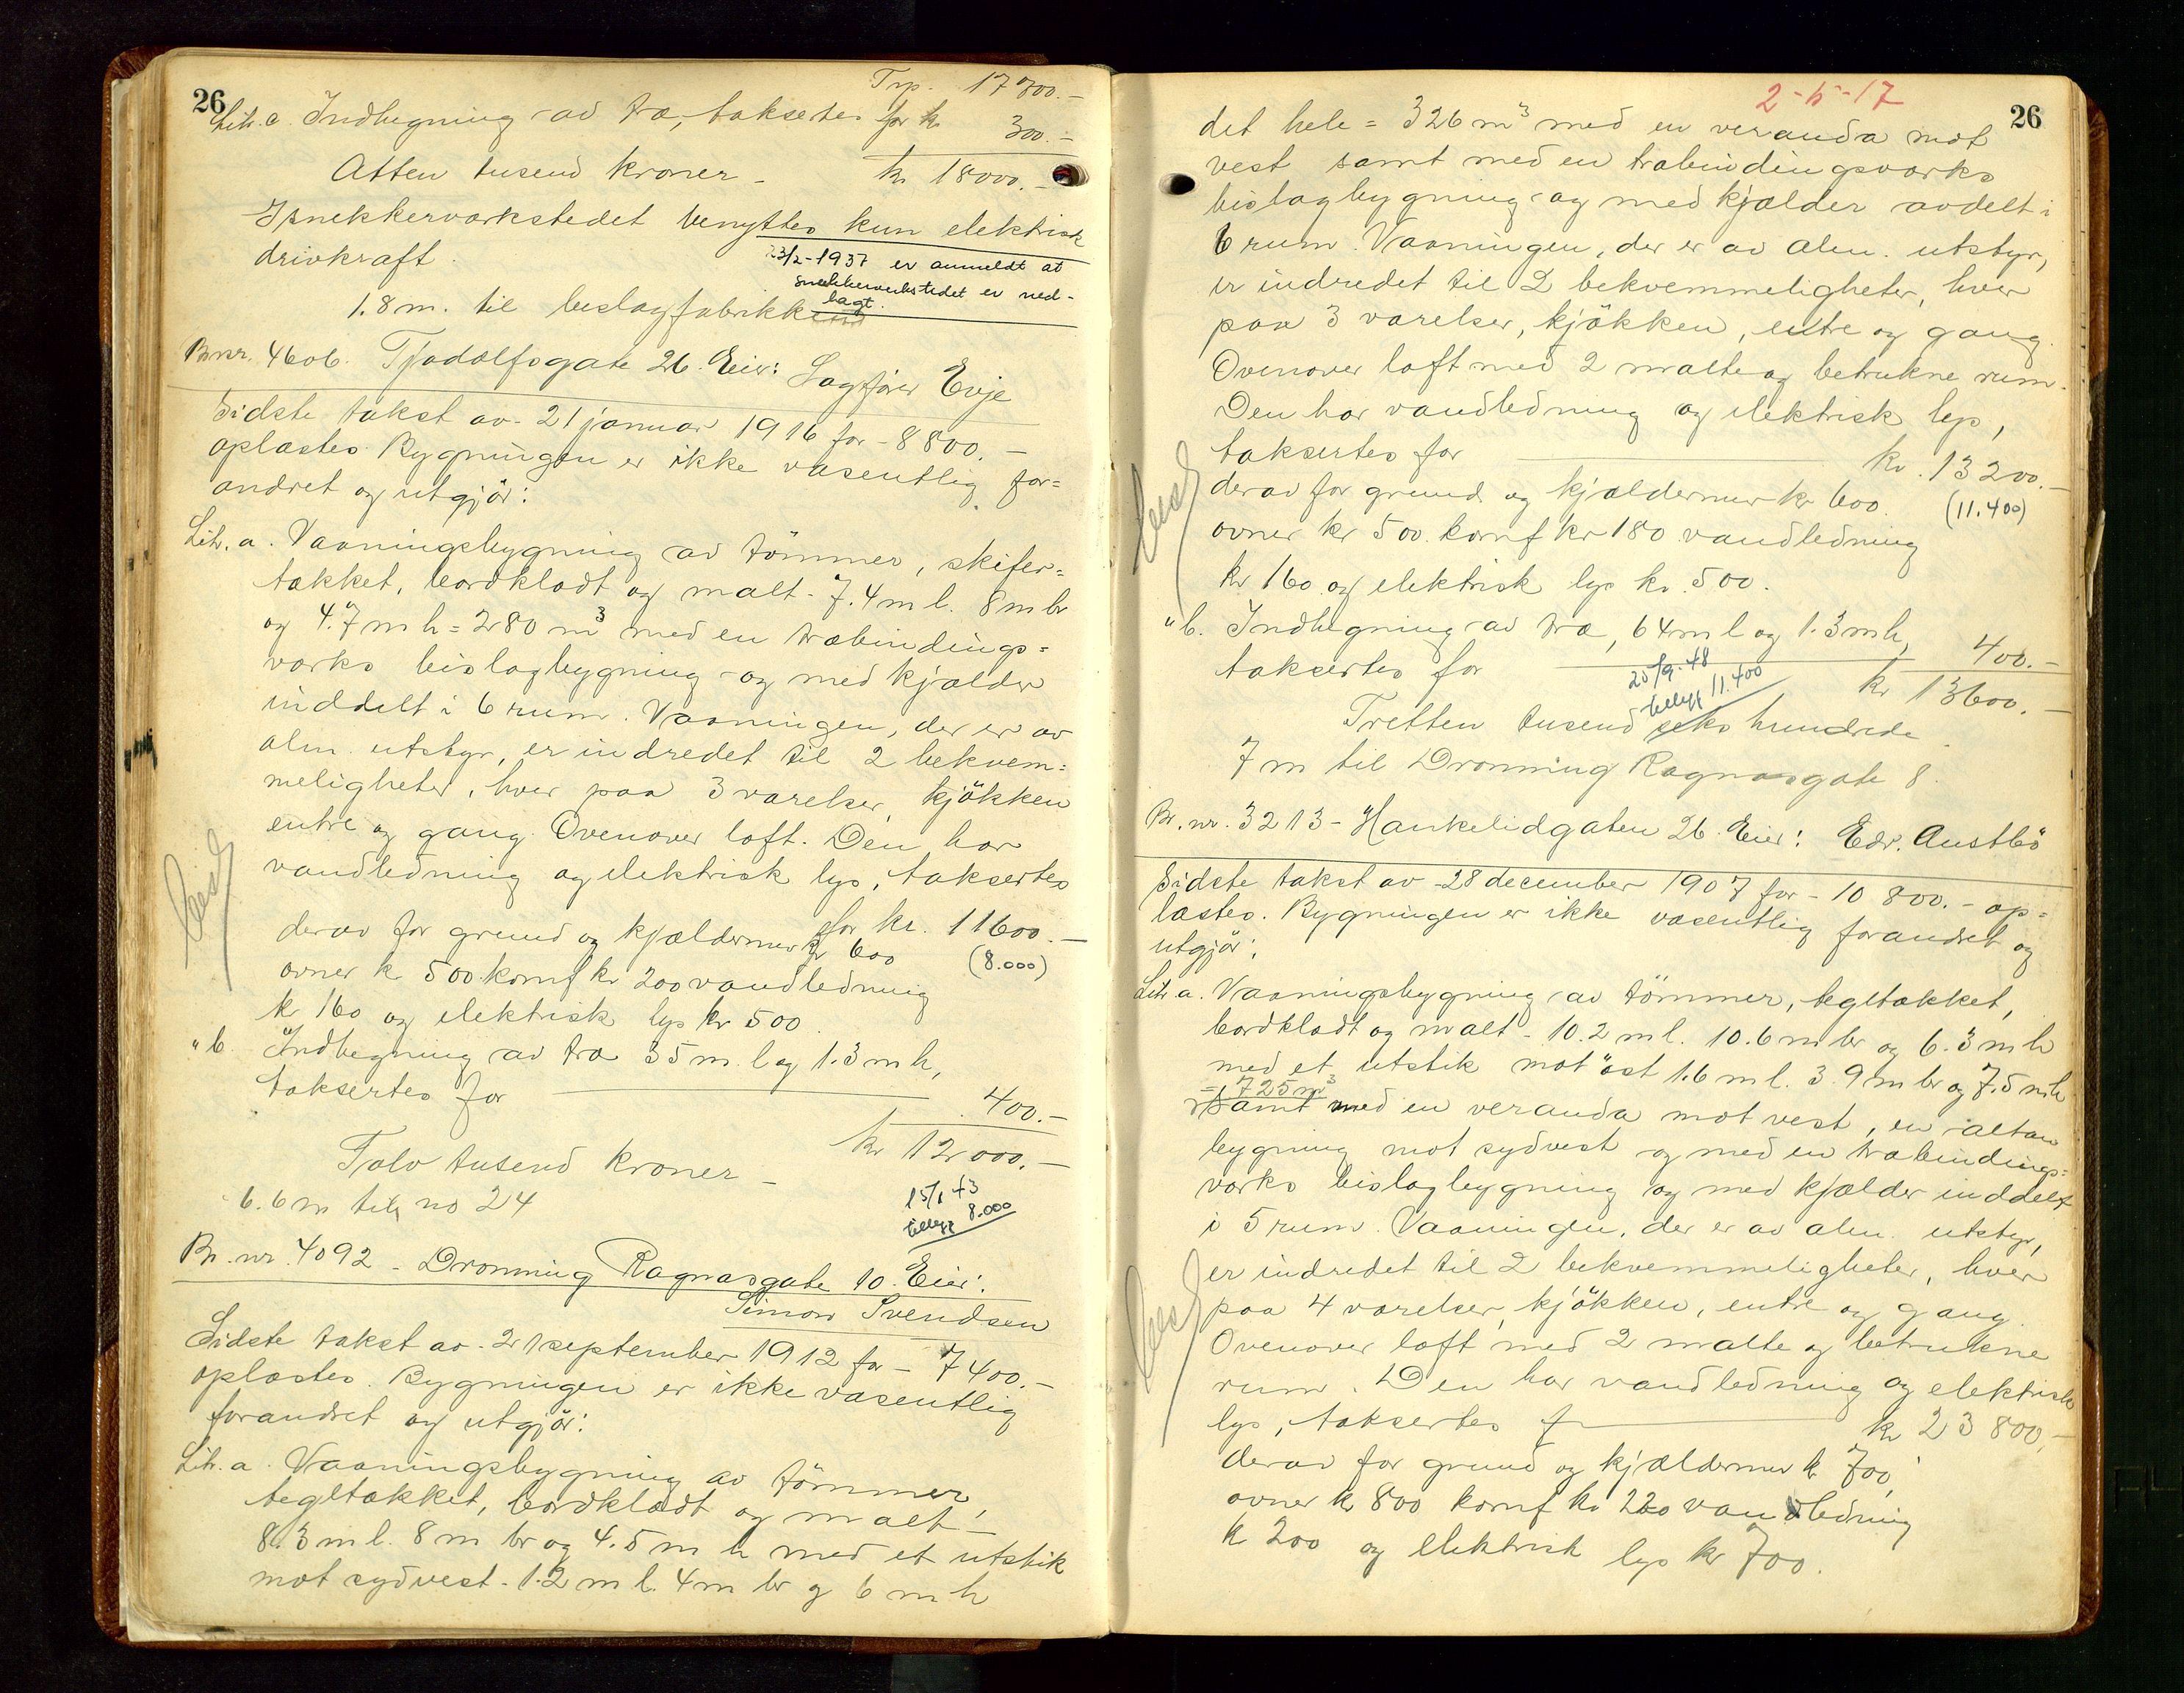 26
Trp. 17700.-
Litr. c. Indhegning av træ, taksertes for kr 300.-
Atten tusend kroner - kr 18000.-
I snekkerværkstedet benyttes kun elektrisk
drivkraft.
23/2-1937 er anmeldt at
snekkerverkstedet er ned-
lagt.
1.8 m. til beslagfabrikken
Br.nr. 4606. Tjodolfsgate 26. Eier: Sagfører Evje
Sidste takst av - 21 januar 1916 for - 8800.-
oplæstes. Bygningen er ikke væsentlig for=
andret og utgjör:
Litr. a. Vaaningsbygning av tömmer, skifer=
tækket, bordklædt og malt - 7.4 m l. 8 m br
og 4.7 m h = 280 m³ med en træbindings=
værks bislagbygning og med kjælder
inddelt i 6 rum. Vaaningen, der er av
alm. utstyr, er indredet til 2 bekvem=
meligheter, hver paa 3 værelser, kjökken
entre og gang. Ovenover loft. Den har
vandledning og elektrisk lys, taksertes
for kr. 11600.-
derav for grund og kjældermur kr 600
(8.000)
ovner kr 500 komf kr 200 vandledning
kr 160 og elektrisk lys kr 500.
" b. Indhegning av træ 35 m. l og 1.3 m h,
taksertes for 400.-
kr 12000.-
Tolv tusend kroner -
6.6 m til no 24
15/1 43
tillegg 8.000
Br. nr. 4092 - Dronning Ragnasgate 10. Eier:
Simon Svendsen
Sidste takst av - 21 september 1912 for - 7400.-
oplæstes. Bygningen er ikke væsentlig
forandret og utgjör:
Litr. a. Vaaningsbygning av tömmer,
tegltækket, bordklædt og malt -
8.3 m l. 8 m br og 4.5 m h med et utstik
mot sydvest - 1.2 m l. 4 m br og 6 m h
2-5-17
26
det hele = 326 m³ med en veranda mot
vest samt med en træbindingsværks
bislagbygning og med kjælder avdelt i
6 rum. Vaaningen, der er av alm. utstyr,
er indredet til 2 bekvemmeligheter, hver
paa 3 værelser, kjökken, entre og gang.
Ovenover loft med 2 malte og betrukne rum.
Den har vandledning og elektrisk lys,
taksertes for kr. 13200.-
derav for grund og kjældermur kr 600. (11.400)
ovner kr 500. komf kr 180 vandledning
kr 160 og elektrisk lys kr. 500.
" b. Indhegning av træ, 64 m l og 1.3 m h,
taksertes for 400.-
25/9-48
tillegg 11.400
kr 13600.-
Tretten tusend seks hundrede
7 m til Dronning Ragnasgate 8.
Br. nr. 3213 - Haukelidgaten 26. Eier: Edv. Austbö
Sidste takst av - 28 december 1907 for - 10800.- op=
læstes. Bygningen er ikke væsentlig forandret og
utgjör:
Litr. a. Vaaningsbygning av tömmer, tegltækket,
bordklædt og malt - 10.2 m l. 10.6 m br og 6.3 m h
med et utstik mot öst 1.6 m l. 3.9 m br og 7.5 m h
= 725 m³
samt med en veranda mot vest, en altan
bygning mot sydvest og med en træbindings=
værks bislagbygning og med kjælder inddelt
i 5 rum. Vaaningen, der er av alm. utstyr,
er indredet til 2 bekvemmeligheter, hver
paa 4 værelser, kjökken, entre og gang.
Ovenover loft med 2 malte og betrukne
rum. Den har vandledning og elektrisk
lys, taksertes for kr 23800.-
derav for grund og kjældermur kr 700,
ovner kr 800 komf kr 220 vandledning
kr 200 og elektrisk lys kr 700.